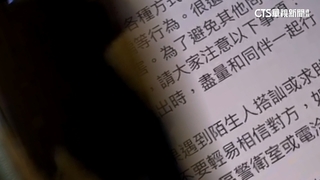 CTS華視新聞
各種方式
等行為。很遺
。為了避免其他同
，請大家注意以下事項
出時，盡量和同伴一起行
遇到陌生人搭訕或求助
不要輕易相信對方，如
警衛室或電洽